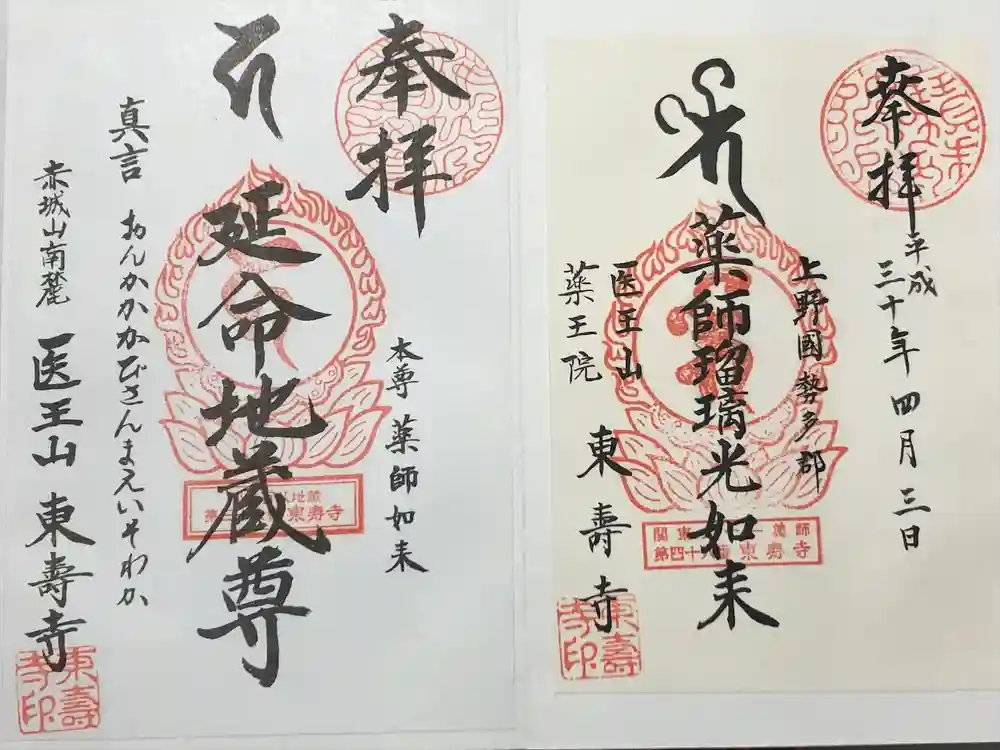 奉拝
平成三十年四月三日
上野國勢多郡
薬師瑠璃光如来
医王山
薬王院
東壽寺
東壽寺印
東寿寺
奉拝
本尊 薬師如来
延命地蔵尊
東寿寺
真言 おんかかかびさんまえいそわか
赤城山南麓 医王山 東壽寺
東壽寺印